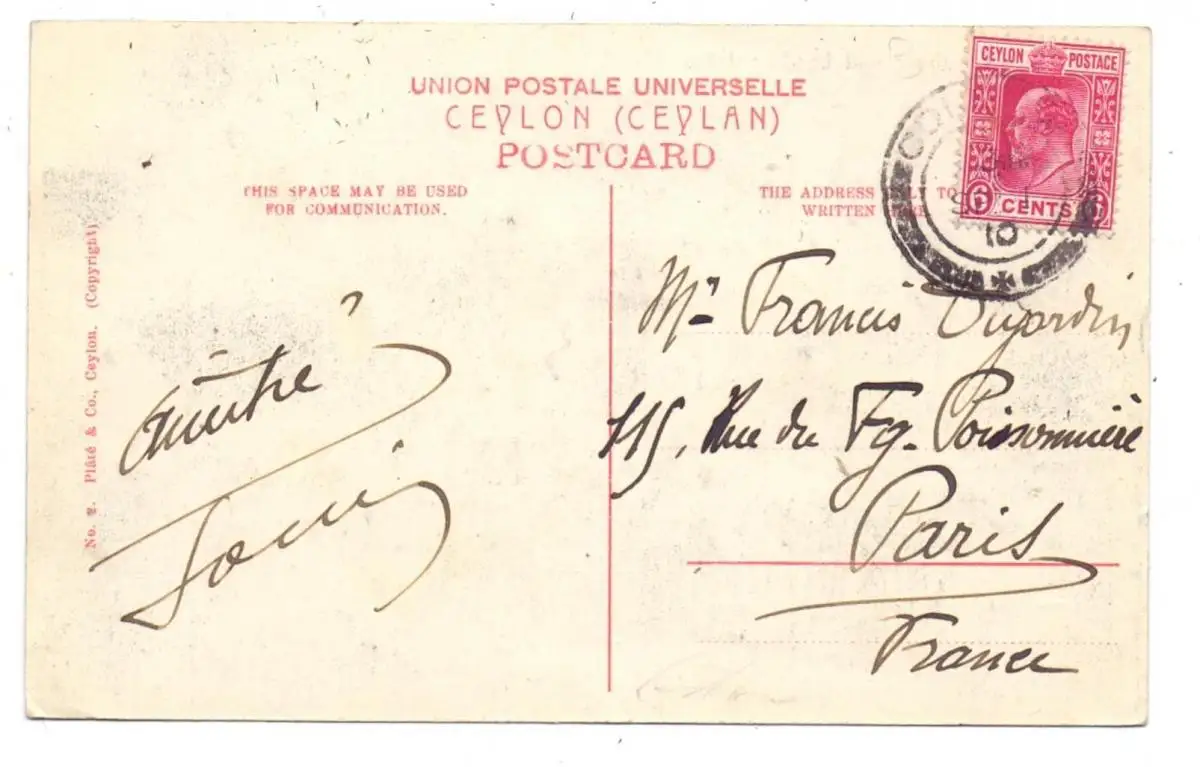 UNION POSTALE UNIVERSELLE
CEYLON (CEYLAN)
POSTCARD
THIS SPACE MAY BE USED
FOR COMMUNICATION.
THE ADDRESS ONLY TO
WRITTEN
CEYLON POSTAGE
6 CENTS 6
10
No. 2. Plâté & Co., Ceylon. (Copyright)
Amitié
Mr Francis Dujardin
115, Rue du Fg. Poissonnière
Paris
France